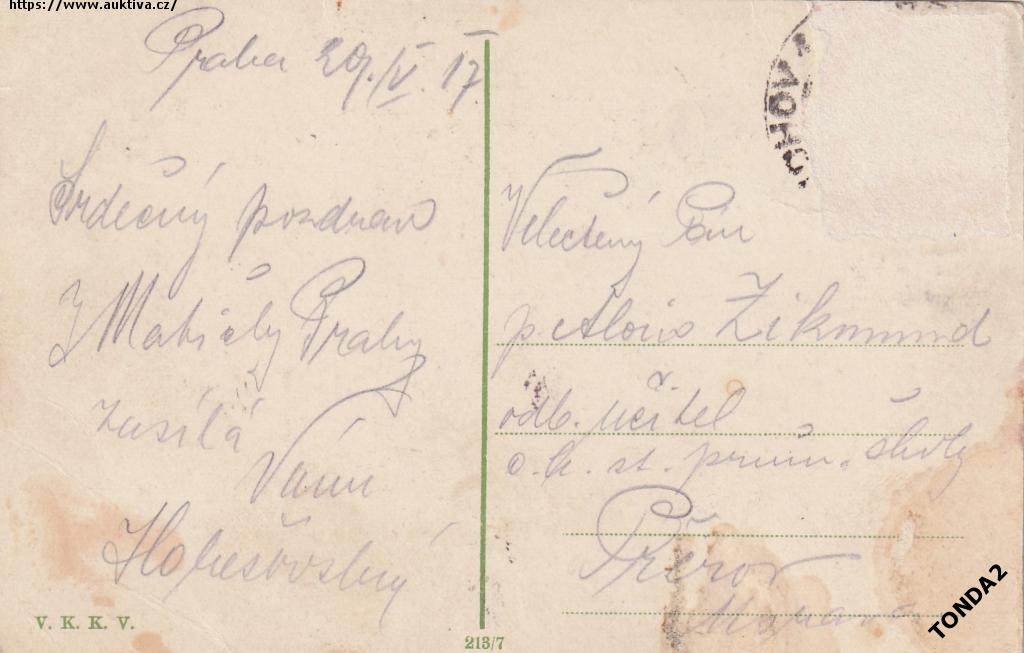 https://www.auktiva.cz/
Praha 29./V. 17.
Srdečný pozdrav
Z Matičky Prahy
zasílá
Vám
Velectěný Pán
p. Alois Zikmund
odb. učitel
c. k. st. prům. školy
Přerov
Morava
V. K. K. V.
213/7
TONDA2